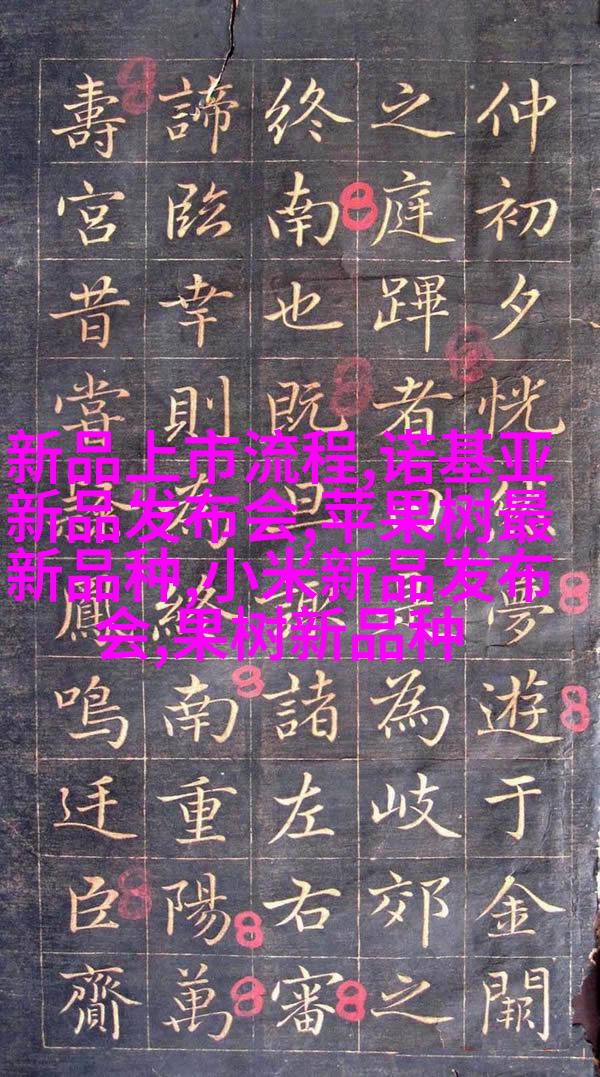 仲初夕恍夢遊于金闕
之庭蹕者為岐郊之
終南也既旦諸左右審
諦臨幸則為終南重陽萬
壽宮昔嘗鳳鳴臣齎
新品上市流程,诺基亚
新品发布会,苹果树最
新品种,小米新品发布
会,果树新品种